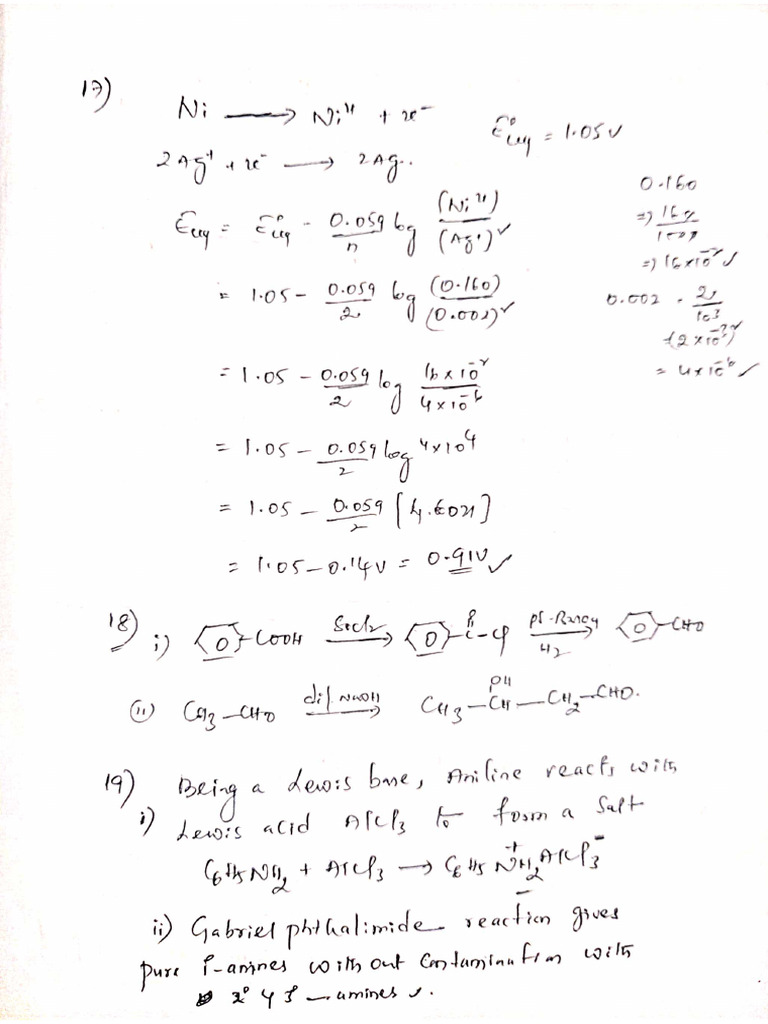 17)
Ni ⟶ Ni²⁺ + 2e⁻
E°cell = 1.05V
2Ag⁺ + 2e⁻ ⟶ 2Ag.
Ecell = E°cell - 0.059/n log (Ni²⁺)/(Ag⁺)²
= 1.05 - 0.059/2 log (0.160)/(0.002)²
= 1.05 - 0.059/2 log 16×10⁻²/4×10⁻⁶
= 1.05 - 0.059/2 log 4×10⁴
= 1.05 - 0.059/2 [4.6021]
= 1.05 - 0.14V = 0.91V ✓
0.160
=) 160/1000
=) 16×10⁻² ✓
0.002 = 2/10³
(2×10⁻³)²
= 4×10⁻⁶ ✓
18) i) COOH SOCl₂ ⟶ O C-Cl pd-BaSO4 H2 ⟶ CHO
(ii) CH3-CHO dil NaOH ⟶ CH3-CH(OH)-CH2-CHO.
19) Being a Lewis base, Aniline reacts with
i) Lewis acid AlCl3 to form a Salt
C6H5NH2 + AlCl3 ⟶ C6H5N⁺H2AlCl3⁻
ii) Gabriel phthalimide reaction gives
pure 1°-amines with out Contamination with
2° & 3° - amines.